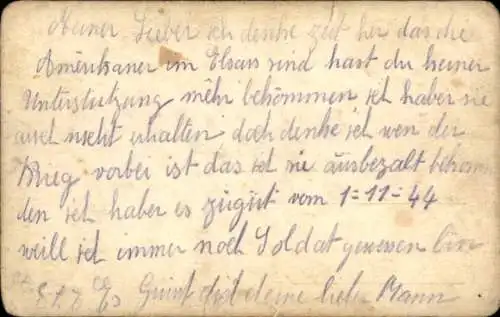 Meiner Lieber ich denke zeit her das die
Amerikaner im Elsass sind hast du keiner
Unterstutzung mehr bekommen ich haber sie
auch nicht erhalten doch denke ich wen der
Krieg vorbei ist das ich sie ausbezalt bekom
den ich haber es zugut vom 1=11=44
weill ich immer noch Soldat gewesen bin
dich deine lieber Mann